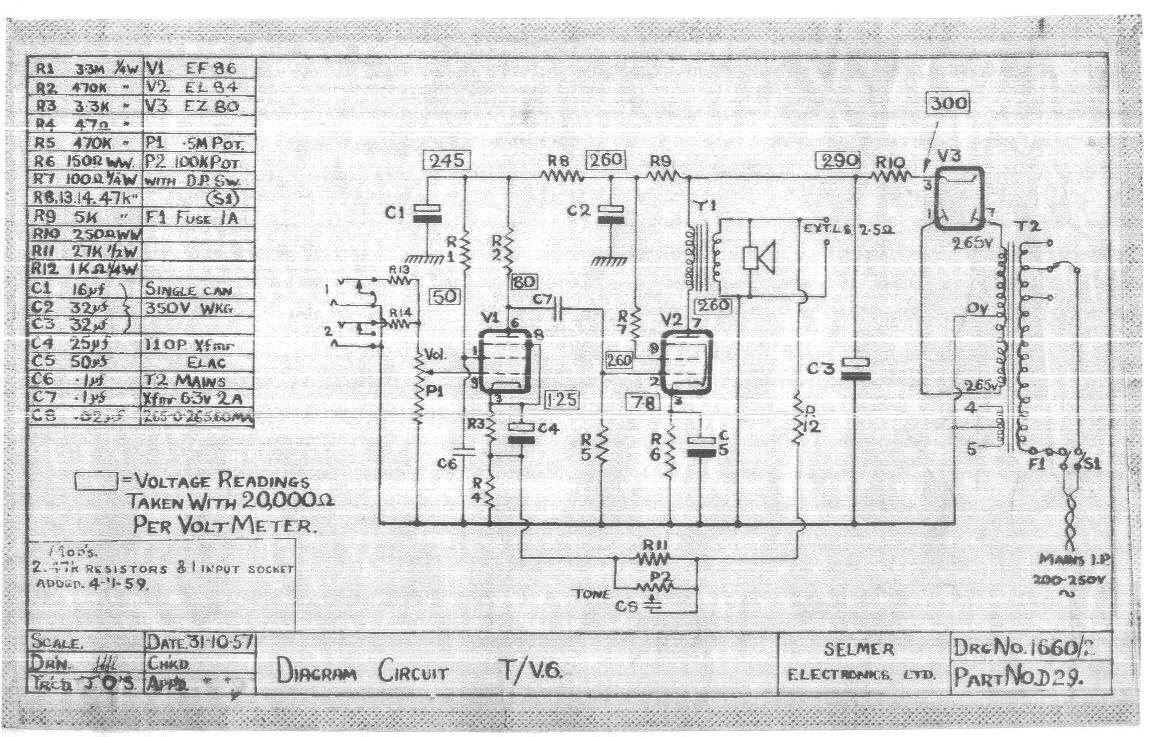 1
R1 3·3M ¼W V1 EF 86
R2 470K " V2 EL 84
R3 3.3K " V3 EZ 80
R4 47Ω "
R5 470K " P1 ·5M POT.
R6 150Ω WW P2 100K POT
R7 100Ω ¼W WITH D.P. SW.
R8,13.14. 47K " (S1)
R9 5K " F1 FUSE 1A
R10 250Ω WW
R11 27K ½W
R12 1KΩ ¼W
C1 16µf SINGLE CAN
C2 32µf 350V WKG
C3 32µf
C4 25µf T1 OP Xfmr
C5 50µf ELAC
C6 ·1µf T2 MAINS
C7 ·1µf Xfmr 6·3V 2A
C8 ·02µf 265-0-265.60MA
300
245
R8
260
R9
290
R10
V3
3
C1
C2
T1
1
7
T2
R
1
R
2
EXT.LS 2·5Ω
265V
R13
1
50
80
C7
260
0V
R14
2
V1
6
8
R
7
V2
7
Vol.
1
9
260
C3
P1
9
2
265V
3
125
78
3
R
12
4
R3
C4
R
5
R
6
C
5
5
F1
S1
C6
R
4
=VOLTAGE READINGS
TAKEN WITH 20,000Ω
PER VOLT METER.
MOD'S.
2. 47K RESISTORS & 1 INPUT SOCKET
ADDED. 4-11-59.
R11
P2
TONE
C8
MAINS I.P.
200-250V
~
SCALE. DATE 31-10-57
DRN. CHKD
TRC'D J O'S. APP'D " "
DIAGRAM CIRCUIT T/V.6.
SELMER
ELECTRONICS. LTD.
DRG No. 1660/2.
PART No. D29.